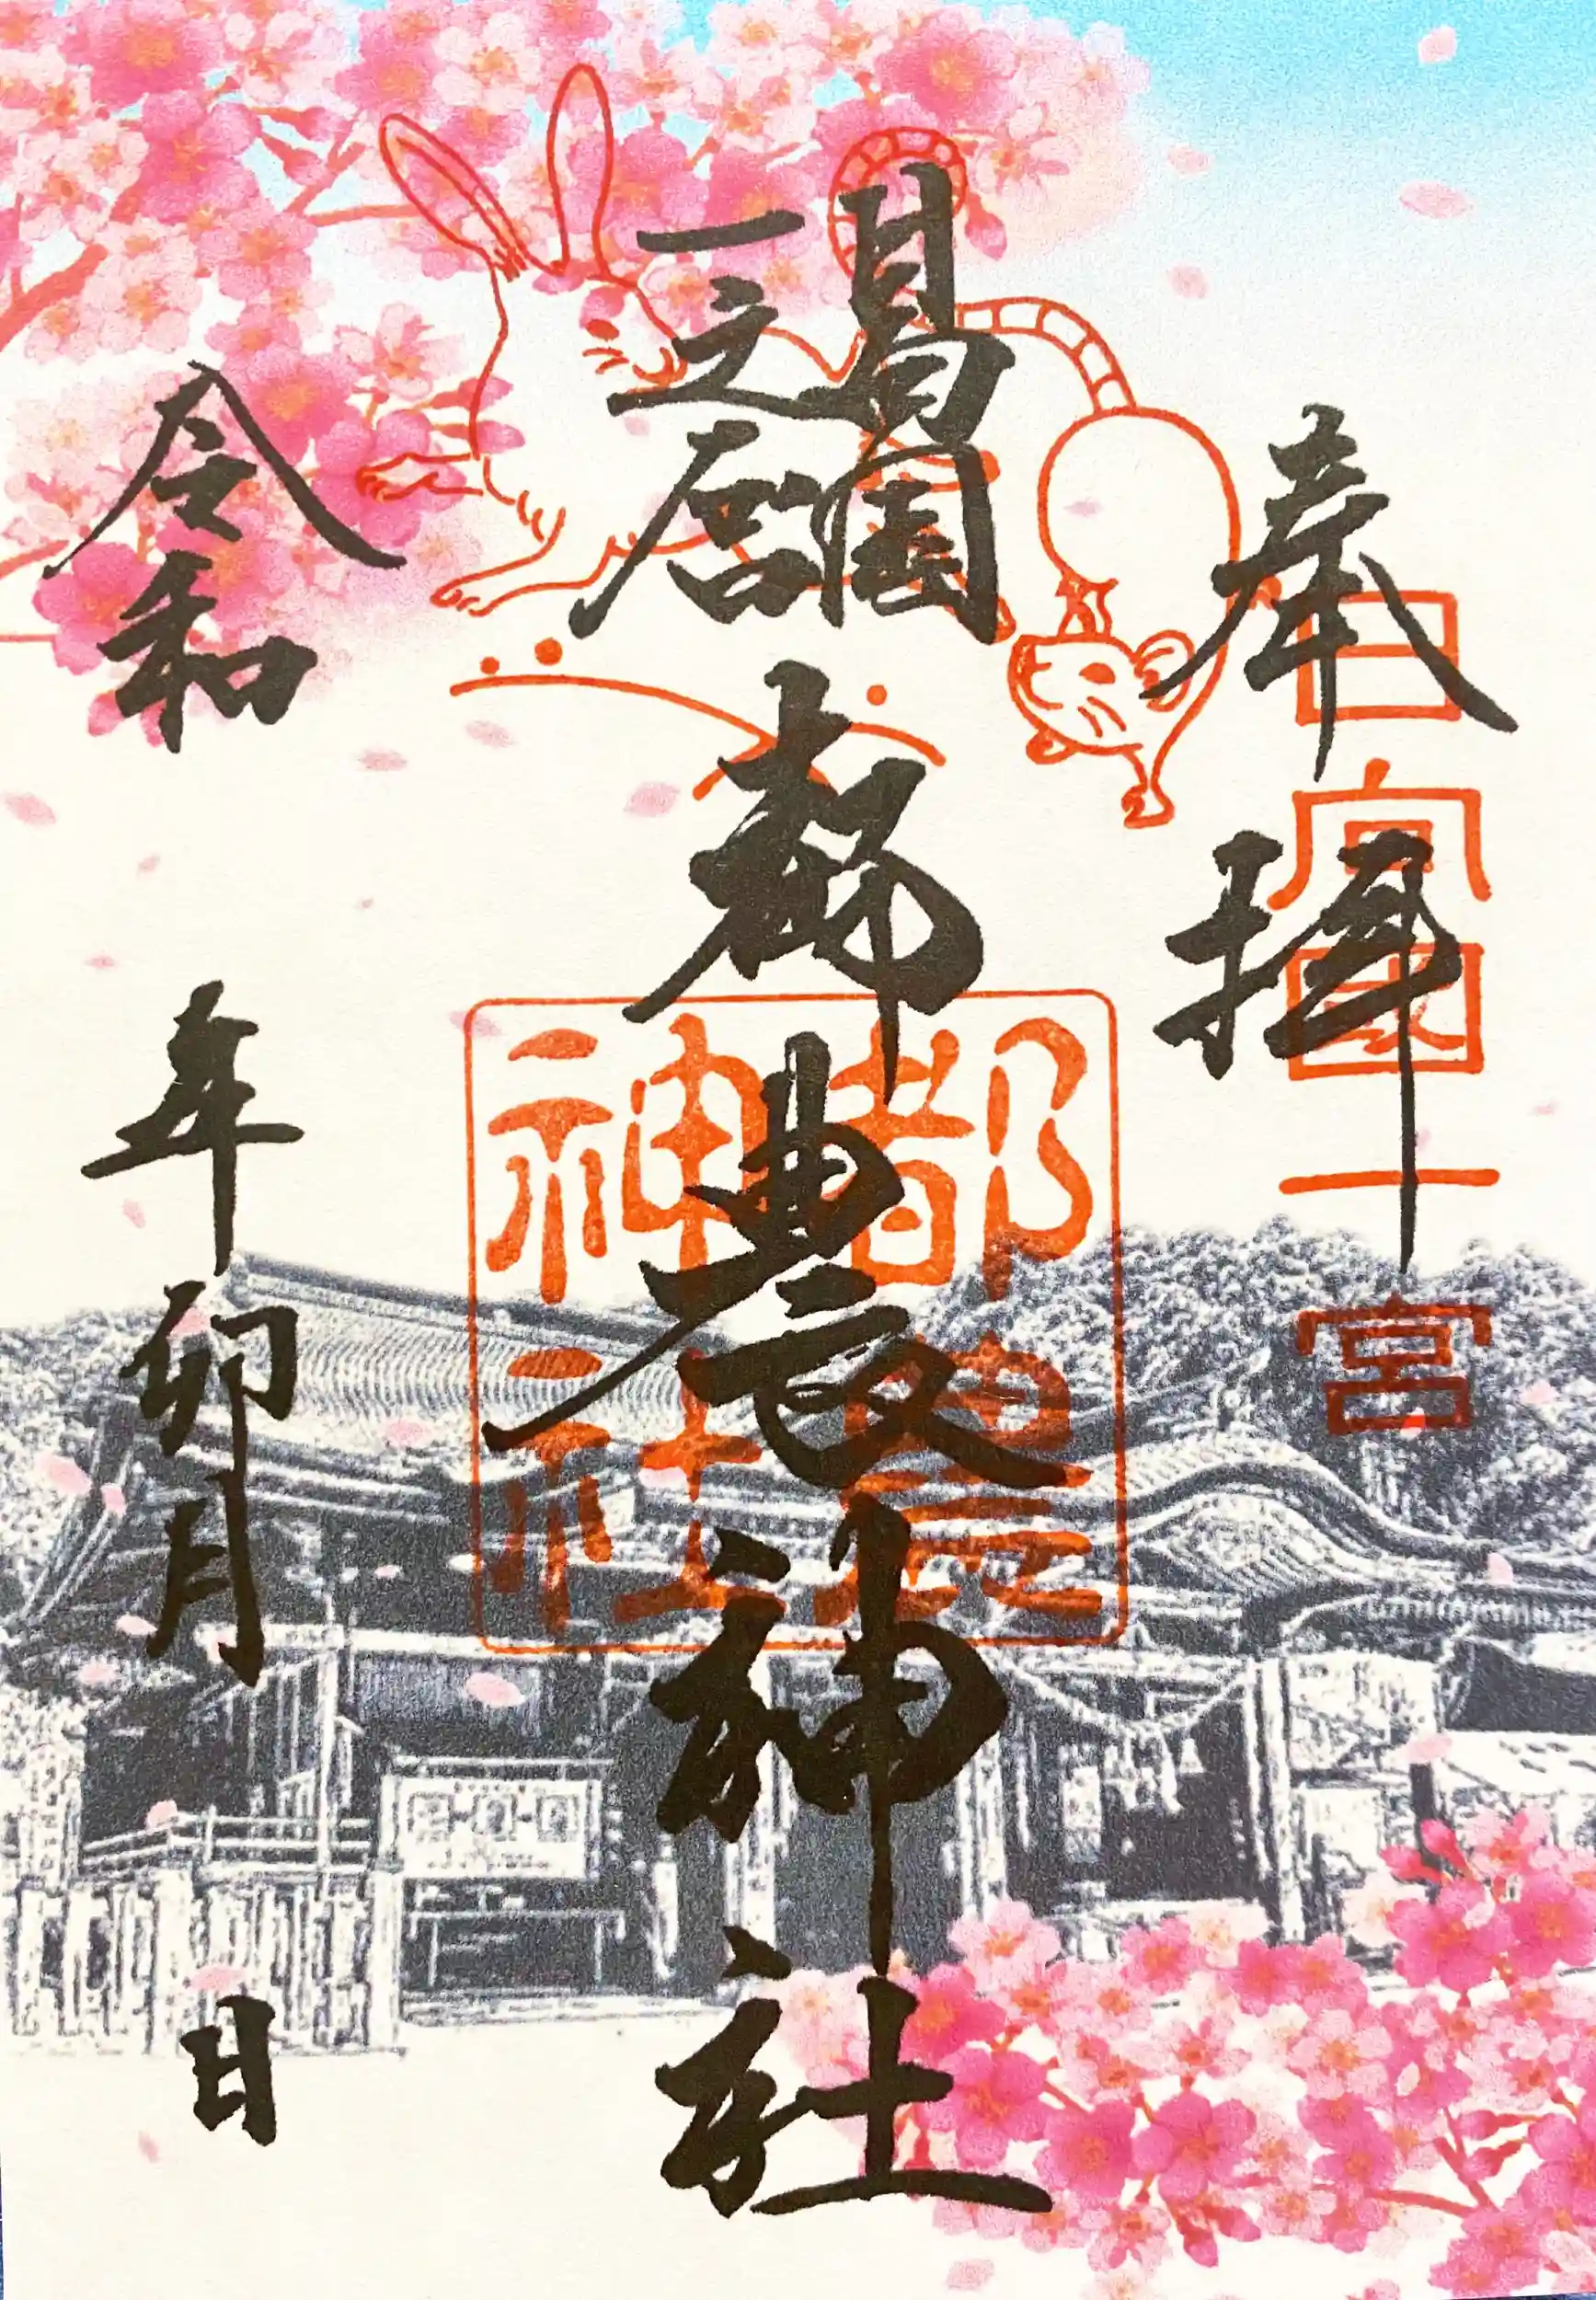 奉拝
日向国一宮
日向国
一之宮
都農神社
都農
神社
令和 年卯月 日